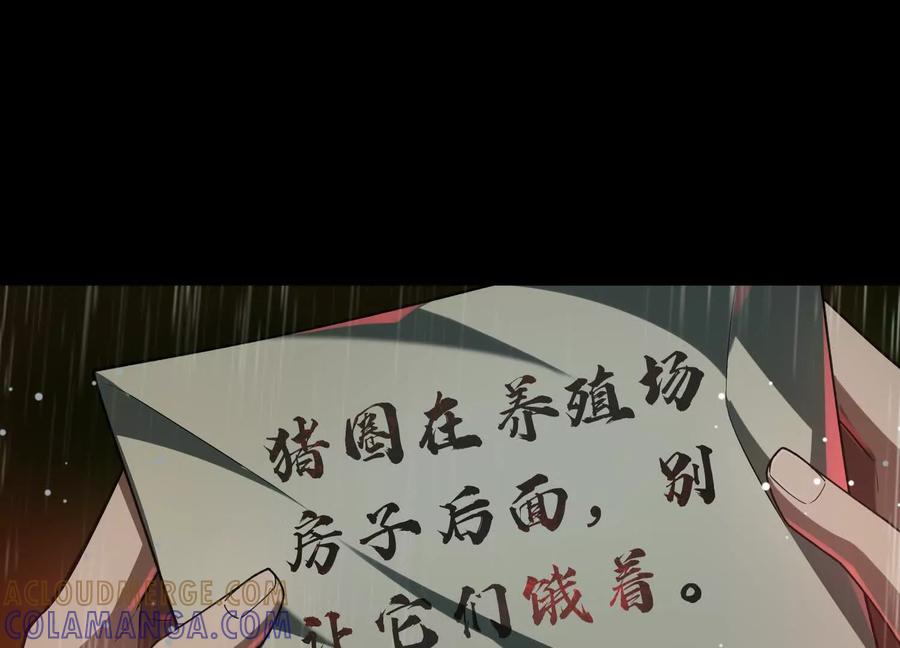 猪圈在养殖场
房子后面，别
让它们饿着。
ACLOUDMERGE.COM
COLAMANGA.COM